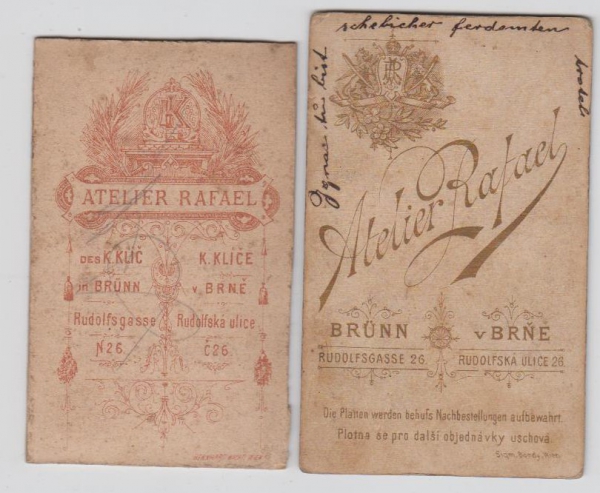 K
ATELIER RAFAEL
DES K. KLIČ
in BRÜNN
Rudolfsgasse
N26.
K. KLÍČE
v BRNĚ
Rudolfská ulice
Č26.
schelicher
du bist
Atelier Rafael
BRÜNN
RUDOLFSGASSE 26.
v BRNĚ
RUDOLFSKÁ ULICE 26.
Die Platten werden behufs Nachbestellungen aufbewahrt.
Plotna se pro další objednávky uschová.